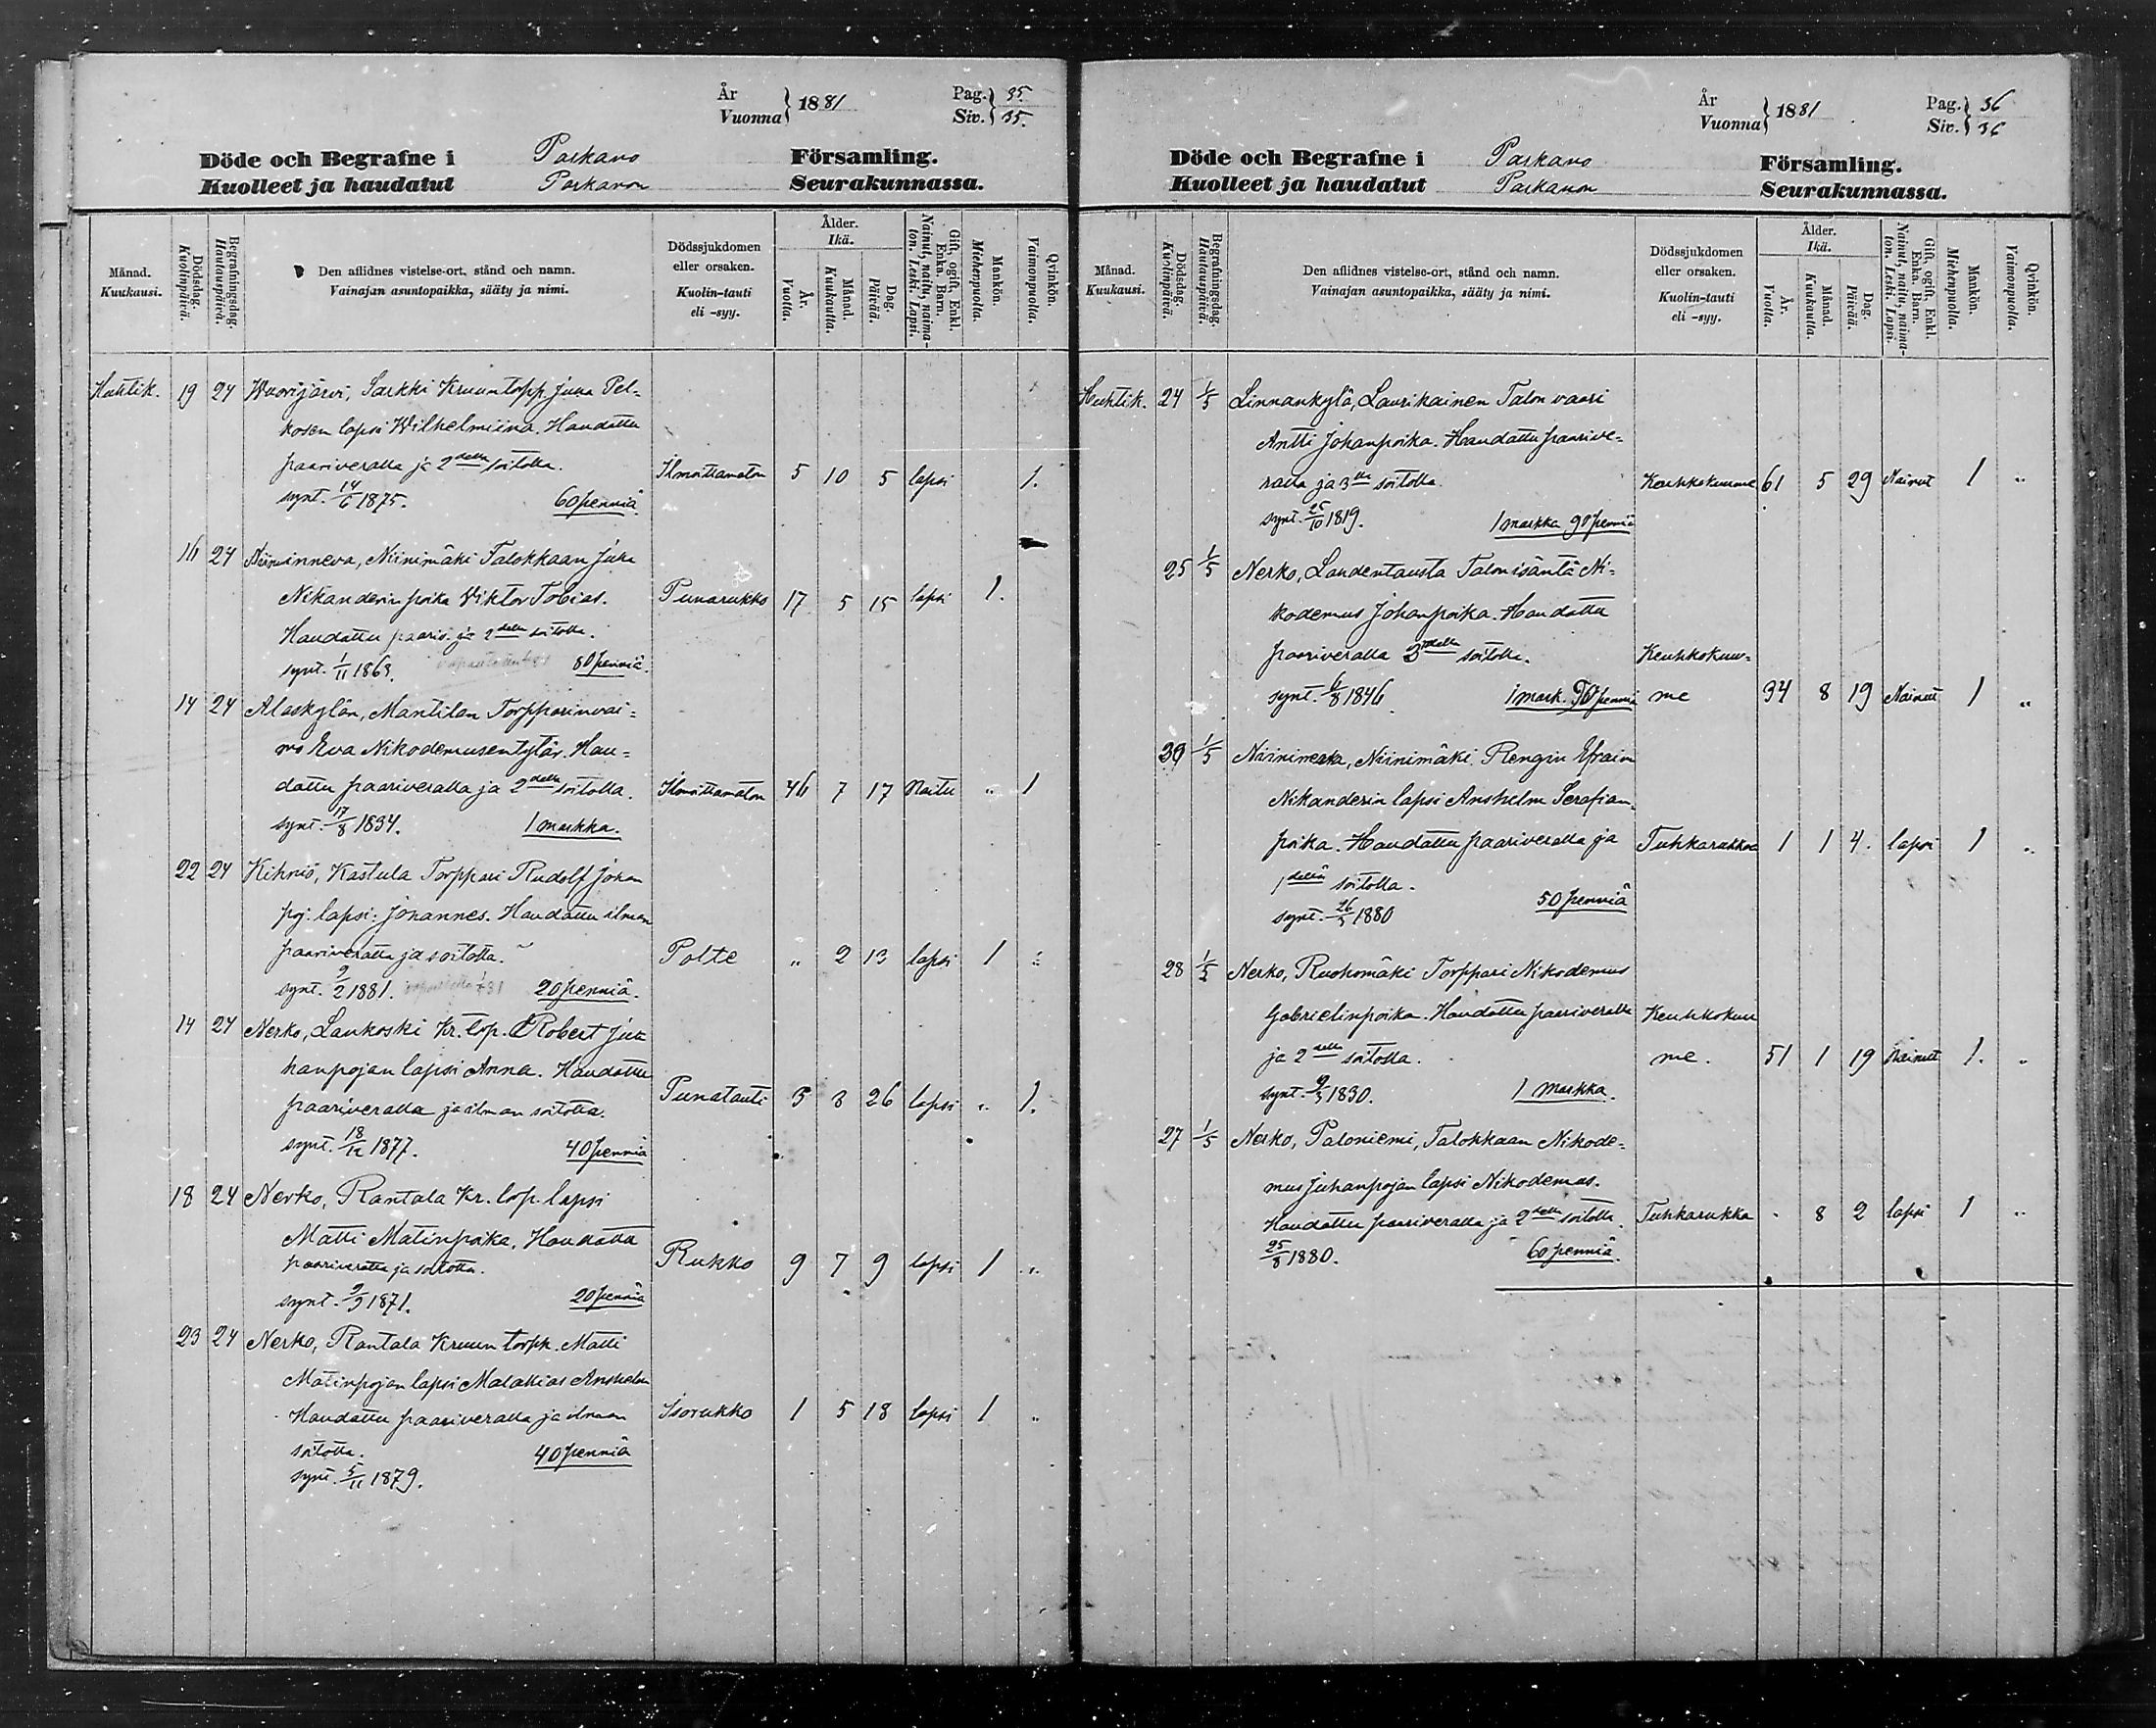 År Vuonna } 1881 Pag. Siv. } 35. 35.
Döde och Begrafne i Parkano Församling.
Kuolleet ja haudatut Parkanon Seurakunnassa.
Månad. Kuukausi.
Dödsdag. Kuolinpäivä.
Begrafningsdag. Hautauspäivä.
Den aflidnes vistelse-ort, stånd och namn.
Vainajan asuntopaikka, sääty ja nimi.
Dödssjukdomen eller orsaken.
Kuolin-tauti eli -syy.
Ålder. Ikä.
År. Vuotta.
Månad. Kuukautta.
Dag. Päivää.
Gift, ogift, Enkl. Enka. Barn. Nainut, naitu, naimaton. Leski. Lapsi.
Mankön. Miehenpuolta.
Qvinkön. Vaimonpuolta.
Huhtik. 19 24 Wuorijärvi, Sarkki Kruuntopp. Juha Pel-
kosen lapsi Wilhelmiina. Haudattu
paariveralla ja 2della soitolla. Ilmoittamaton 5 10 5 lapsi 1.
synt. 14/6 1875. 60 penniä
16 24 Niininneva, Niinimäki Talokkaan Juha
Nikanderin poika Viktor Tobias. Punarukko 17 5 15 lapsi 1.
Haudattu paariv. ja 2della soitolla.
synt. 1/11 1863. 80 penniä.
14 24 Alaskylän, Mantilan Torpparinvai-
mo Eva Nikodemusentytär. Hau-
dattu paariveralla ja 2della soitolla. Ilmoittamaton 46 7 17 Naitu „ 1
synt. 17/8 1834. 1 markka.
22 24 Kihniö, Kastula Torppari Rudolf Johan
poj. lapsi: Johannes. Haudattu ilman
paariveratta ja soitotta. Polte „ 2 13 lapsi 1 „
synt. 9/2 1881. 20 penniä.
14 24 Nerko, Laukoski Kr. top. Robert Ju-
hanpojan lapsi Anna. Haudattu
paariveralla ja ilman soitotta. Punatauti 3 3 26 lapsi „ 1.
synt. 18/12 1877. 40 penniä
18 24 Nerko, Rantala Kr. top. lapsi
Matti Matinpoika. Haudattu
paariveratta ja soitotta. Rukko 9 7 9 lapsi 1 „
synt. 9/9 1871. 20 penniä
23 24 Nerko, Rantala Kruun torpp. Matti
Matinpojan lapsi Malakias Anshelm
Haudattu paariveralla ja ilman Isorukko 1 5 18 lapsi 1 „
soitotta. 40 penniä
synt. 5/11 1879.
År Vuonna } 1881 Pag. Siv. } 36 36
Döde och Begrafne i Parkano Församling.
Kuolleet ja haudatut Parkanon Seurakunnassa.
Månad. Kuukausi.
Dödsdag. Kuolinpäivä.
Begrafningsdag. Hautauspäivä.
Den aflidnes vistelse-ort, stånd och namn.
Vainajan asuntopaikka, sääty ja nimi.
Dödssjukdomen eller orsaken.
Kuolin-tauti eli -syy.
Ålder. Ikä.
År. Vuotta.
Månad. Kuukautta.
Dag. Päivää.
Gift, ogift, Enkl. Enka. Barn. Nainut, naitu, naimaton. Leski. Lapsi.
Mankön. Miehenpuolta.
Qvinkön. Vaimonpuolta.
Huhtik. 24 1/5 Linnankylä, Laurikainen Talon vaari
Antti Johanpoika. Haudattu paarive-
ralla ja 3lla soitolla. Keuhkokuume 61 5 29 Nainut 1 „
synt. 25/10 1819. 1 markka 90 penniä
25 1/5 Nerko, Laudentausta Talonisäntä Ni-
kodemus Johanpoika. Haudattu
paariveralla 3della soitolla. Keuhkokuu-
synt. 6/8 1846 1 mark. 90 penniä me 34 8 19 Nainut 1 „
30 1/5 Niinineska, Niinimäki Rengin Efraim
Nikanderin lapsi Anshelm Serafian
poika. Haudattu paariveralla ja Tuhkarukkoa 1 1 4. lapsi 1 „
1dellä soitolla. 50 penniä
synt. 26/3 1880
28 1/5 Nerko, Ruohomäki Torppari Nikodemus
Gabrielinpoika. Haudattu paariveralla Keuhkokuu
ja 2della soitolla. me. 51 1 19 Nainut 1. „
synt. 9/3 1830. 1 markka.
27 1/5 Nerko, Paloniemi, Talokkaan Nikode-
mus Juhanpojan lapsi Nikodemus.
Haudattu paariveralla ja 2della soitolla. Tuhkarukka „ 8 2 lapsi 1 „
25/8 1880. 60 penniä.